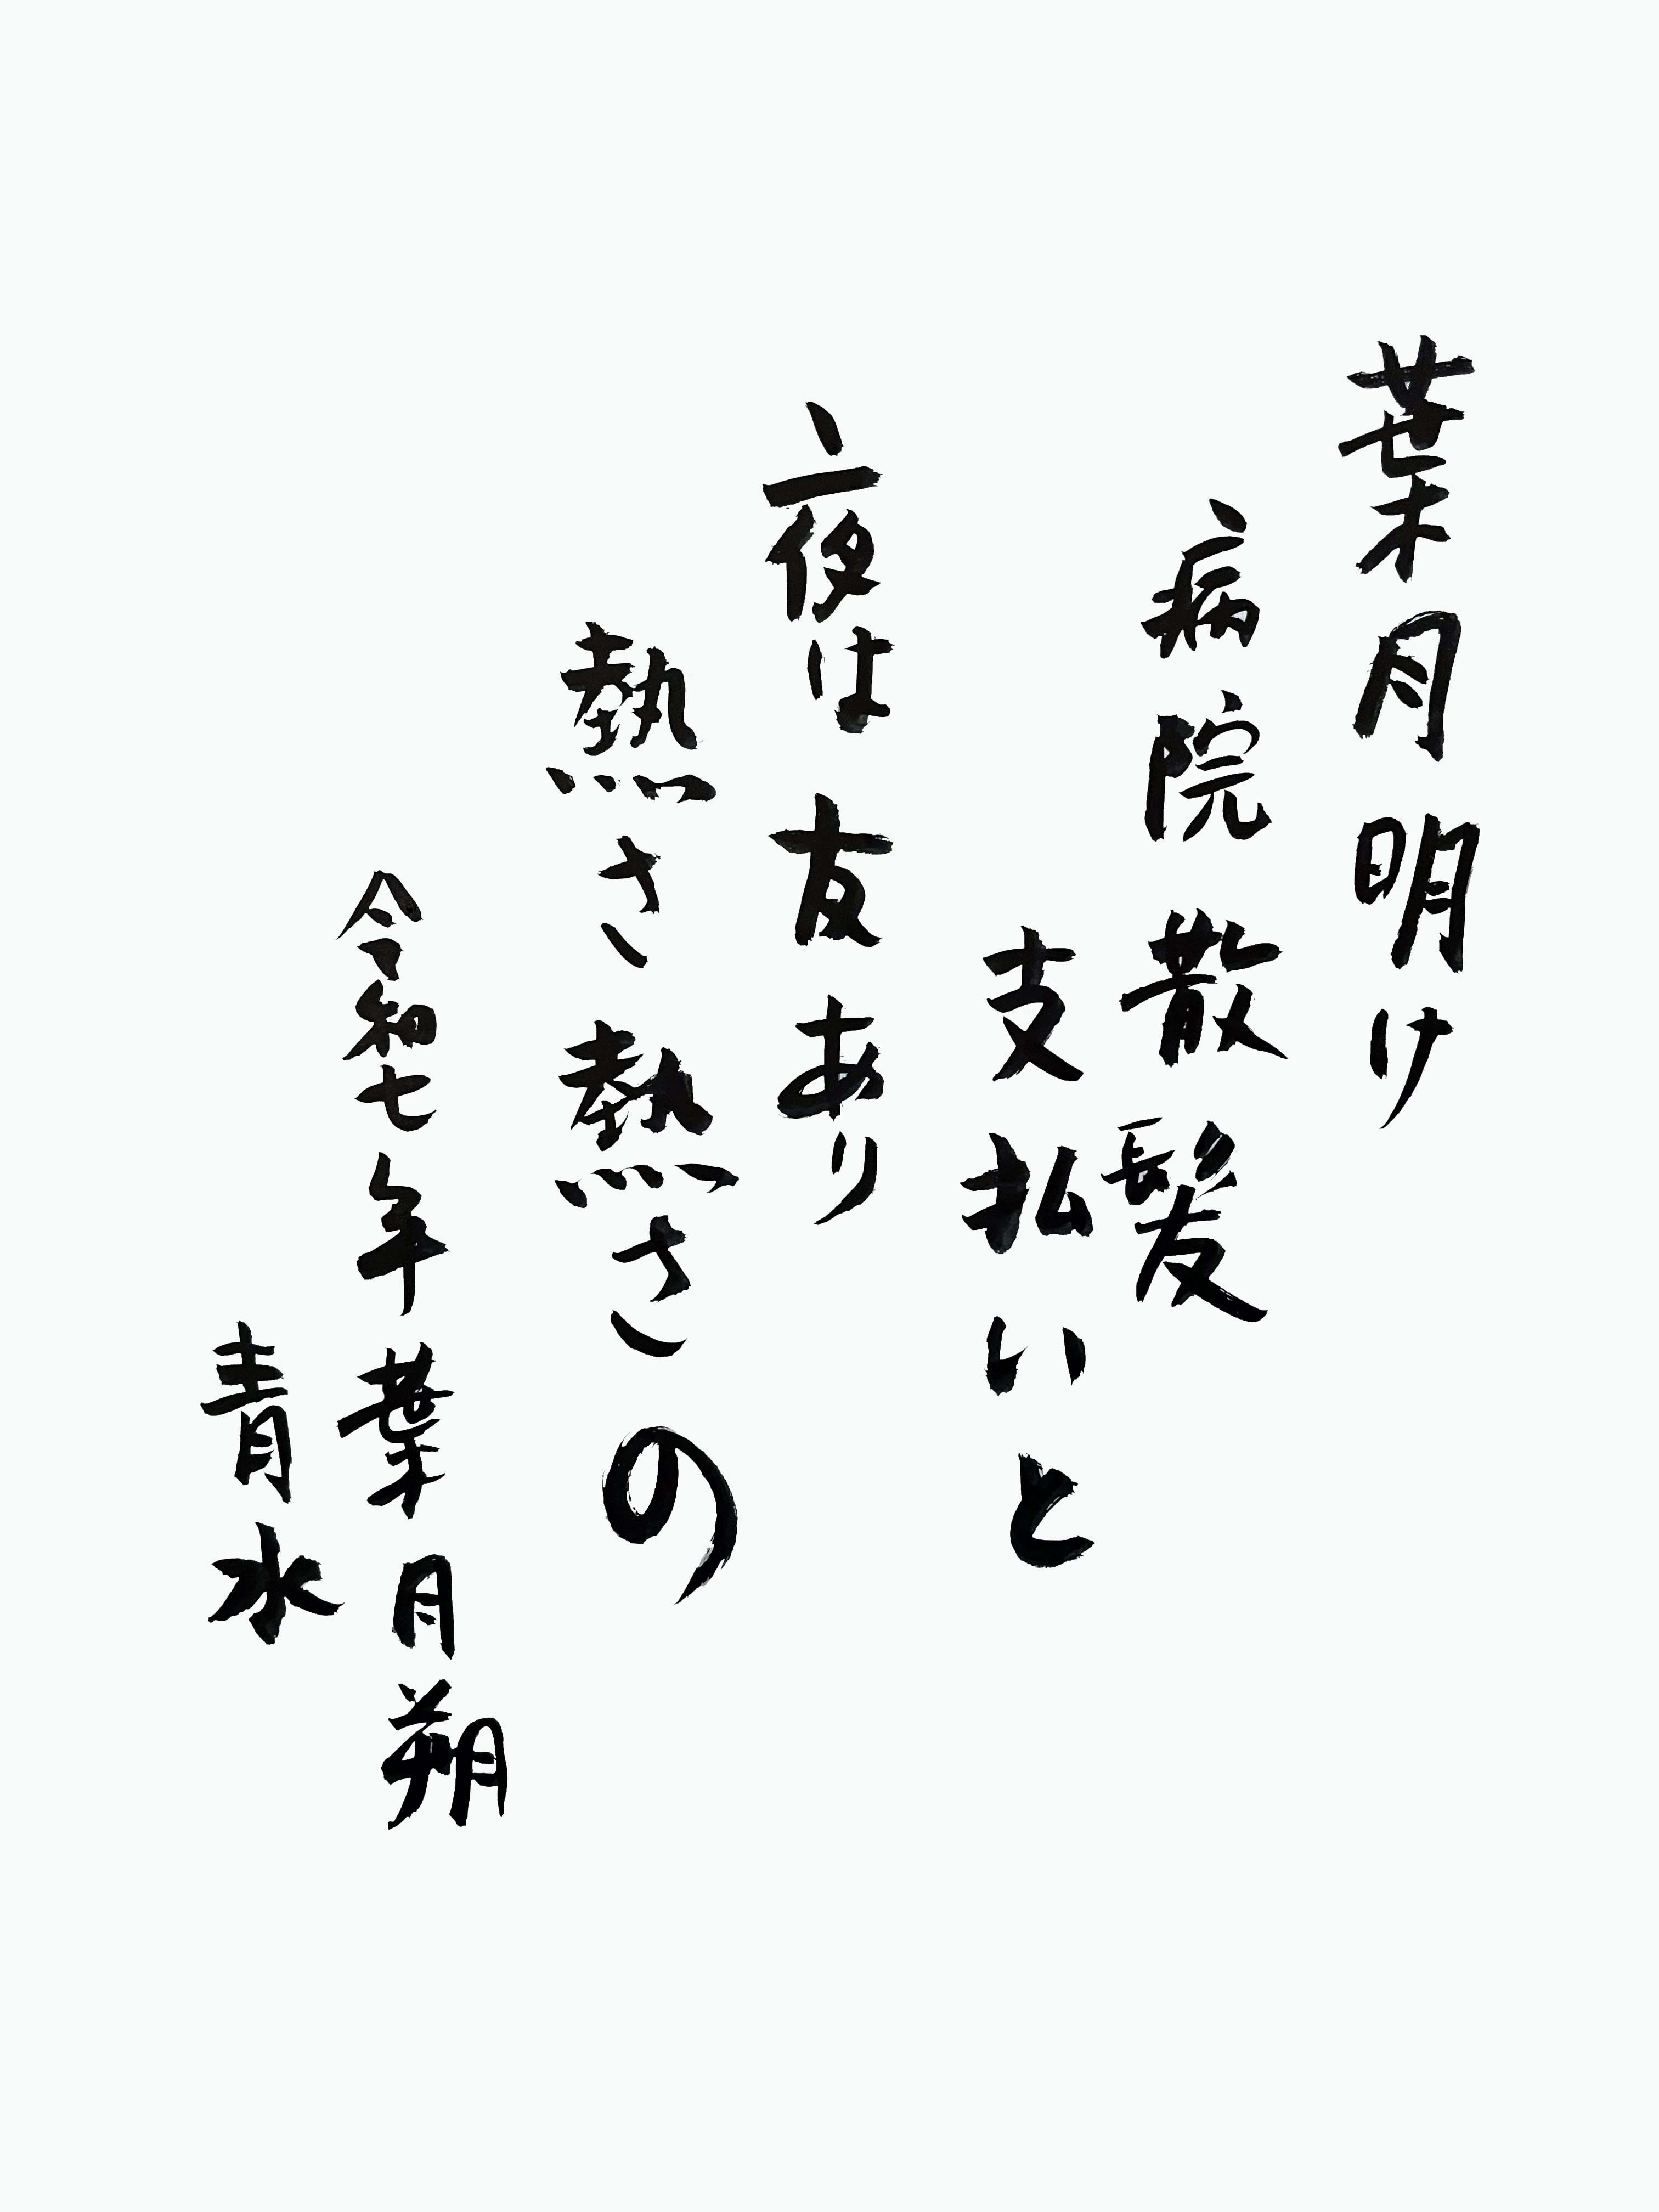 葉月明け
病院散髪
支払いと
夜は友あり
熱さ熱さの
令和七年葉月朔
青水